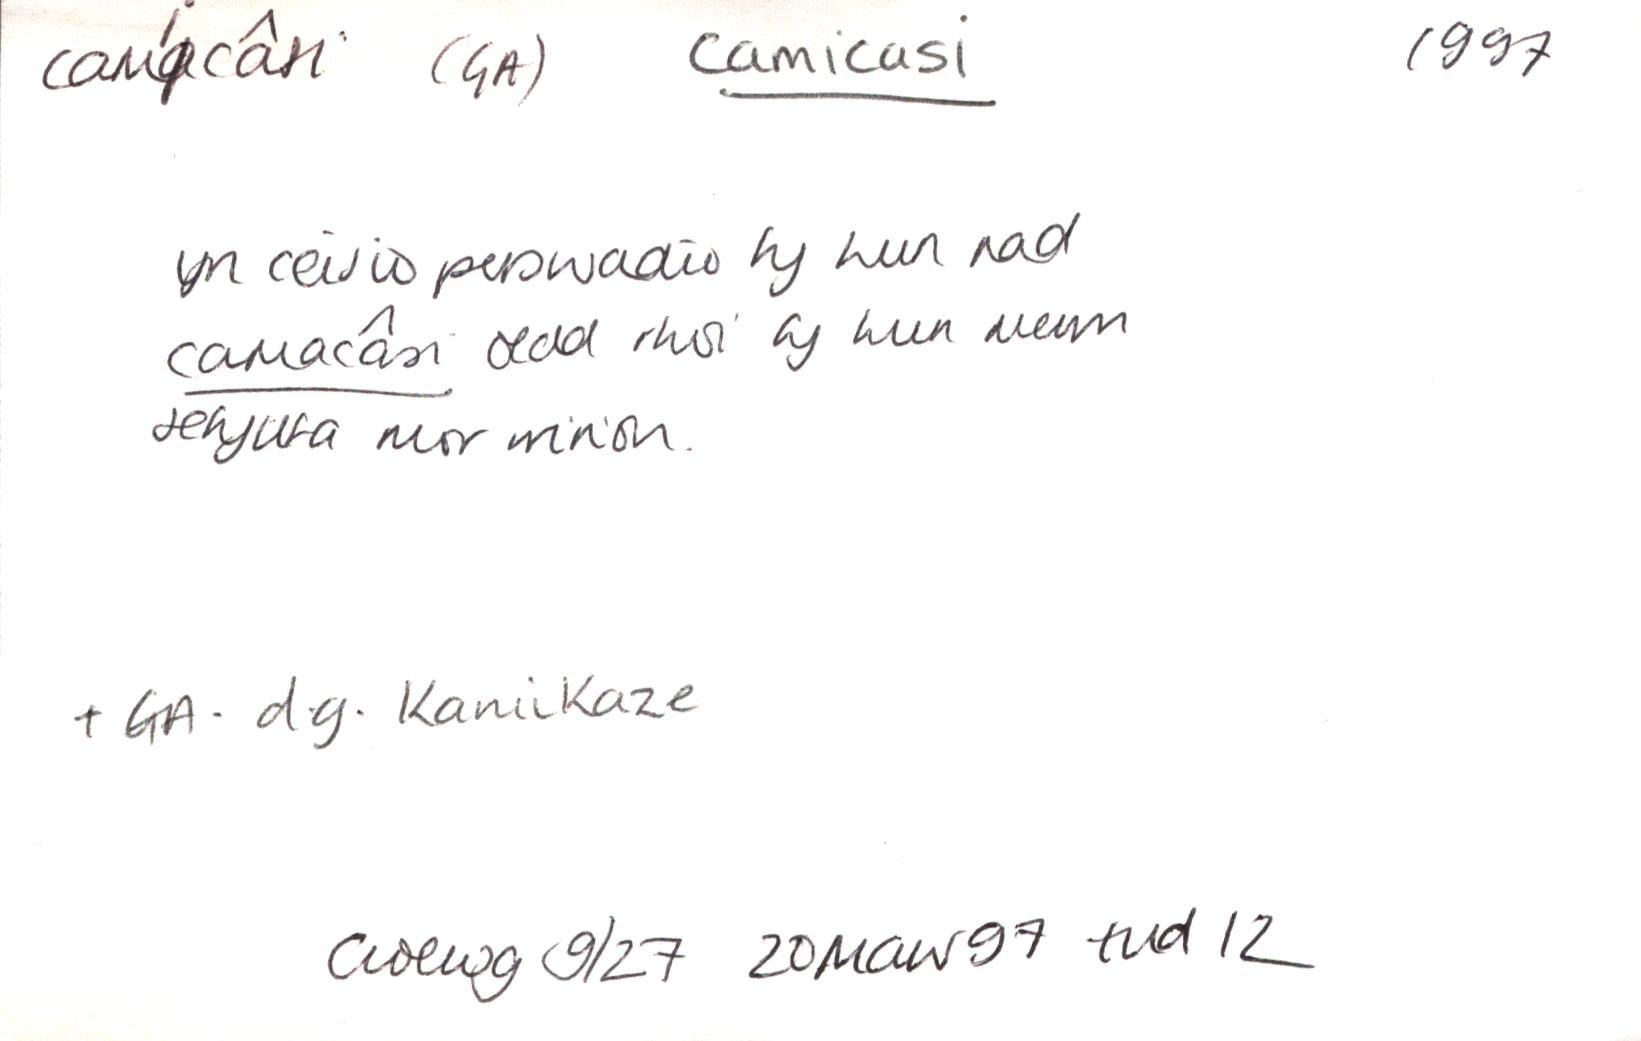 camacâsi (GA) camicasi 1997
yn ceisio perswadio fy hun nad
camacâsi oedd rhoi fy hun mewn
sefyllfa mor wirion.
+ GA. d.g. Kamikaze
Golwg 9/27 20 Maw 97 tud 12